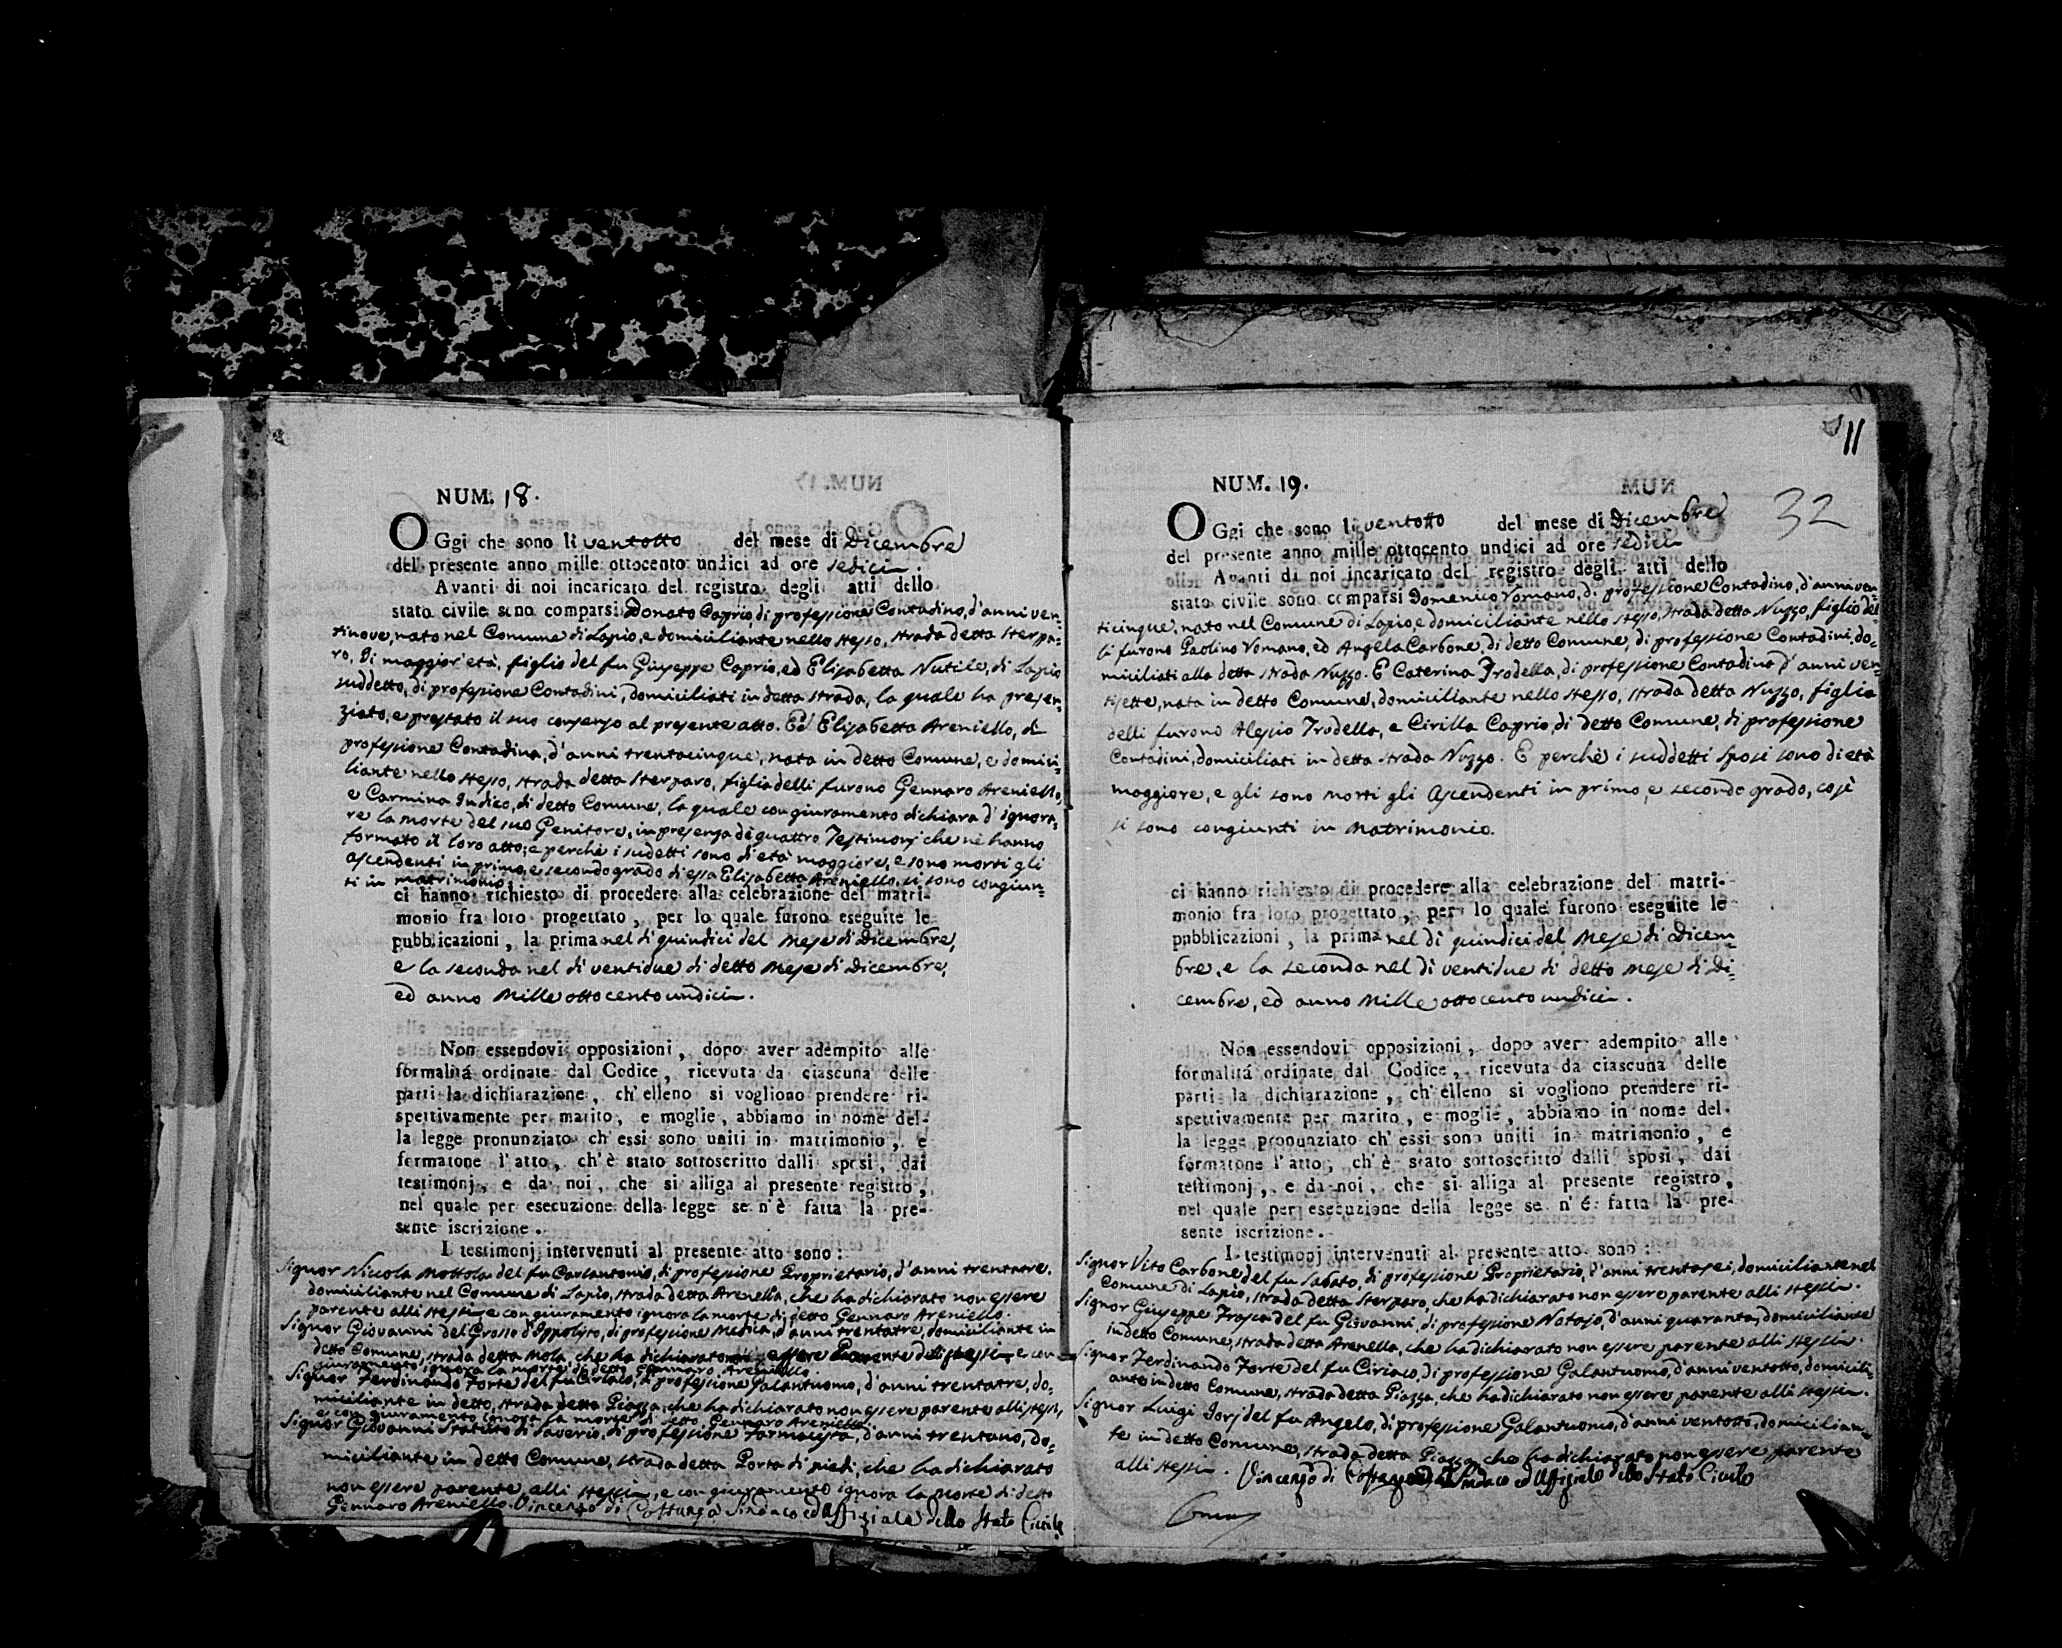 NUM. 18.
OGgi che sono li ventotto del mese di Dicembre
del presente anno mille ottocento undici ad ore sedici.
Avanti di noi incaricato del registro degli atti dello
stato civile sono comparsi Donato Caprio, di professione Contadino, d'anni ven-
tinove, nato nel Comune di Lapio, e domiciliante nello stesso, strada detta Sterpa-
ro, di maggior'età, figlio del fu Giuseppe Caprio, ed Elisabetta Nutile, di Lapio
suddetto, di professione Contadini, domiciliati in detta strada, la quale ha presen-
ziato, e prestato il suo consenso al presente atto. Ed Elisabetta Areniello, di
professione Contadina, d'anni trentacinque, nata in detto Comune, e domici-
liante nello stesso, strada detta Sterparo, figlia delli furono Gennaro Areniello,
e Carmina Indico, di detto Comune, la quale con giuramento dichiara d'ignora-
re la morte del suo Genitore, in presenza di quattro Testimonj che nè hanno
formato il loro atto; e perchè i sudetti sono di età maggiore, e sono morti gli
ascendenti in primo, e secondo grado di essa Elisabetta Areniello, si sono congiun-
ti in matrimonio
ci hanno richiesto di procedere alla celebrazione del matri-
monio fra loro progettato, per lo quale furono eseguite le
pubblicazioni, la prima nel dì quindici del Mese di Dicembre,
e la seconda nel dì ventidue di detto Mese di Dicembre,
ed anno Mille ottocento undici.
Non essendovi opposizioni, dopo aver adempito alle
formalitá ordinate dal Codice, ricevuta da ciascuna delle
parti la dichiarazione, ch'elleno si vogliono prendere ri-
spettivamente per marito, e moglie, abbiamo in nome del-
la legge pronunziato ch'essi sono uniti in matrimonio, e
formatone l'atto, ch'è stato sottoscritto dalli sposi, dai
testimonj, e da noi, che si alliga al presente registro,
nel quale per esecuzione della legge se n'è fatta la pre-
sente iscrizione.
I testimonj intervenuti al presente atto sono:
Signor Niccola Mottola del fu Carlantonio, di professione Proprietario, d'anni trentatre,
domiciliante nel Comune di Lapio, strada detta Arenella, che ha dichiarato non essere
parente alli stessi e con giuramento ignora la morte di detto Gennaro Areniello.
Signor Giovanni del Grosso d'Ippolito, di professione Medico, d'anni trentatre, domiciliante in
detto Comune, strada detta Mola, che ha dichiarato essere Parente e con
giuramento ignora la morte di detto Gennaro Areniello.
Signor Ferdinando Forte del fu Ciriaco, di professione Galantuomo, d'anni trentatre, do-
miciliante in detto, strada detta Piazza, che ha dichiarato non essere parente alli stessi,
e con giuramento ignora la morte di detto Gennaro Areniello.
Signor Giovanni Statuto di Saverio, di professione Farmacista, d'anni trentuno, do-
miciliante in detto Comune, strada detta Porta di piedi, che ha dichiarato
non essere parente alli stessi, e con giuramento ignora la morte di detto
Gennaro Areniello. Vincenzo di Sindaco ed Uffiziale dello Stato Civile
11
32
NUM. 19.
OGgi che sono li ventotto del mese di Dicembre
del presente anno mille ottocento undici ad ore sedici
Avanti di noi incaricato del registro degli atti dello
stato civile sono comparsi Domenico Vomano, di professione Contadino, d'anni ven-
ticinque, nato nel Comune di Lapio, e domiciliante nello stesso, strada detta Nuzzo, figlio del-
li furono Paolino Vomano, ed Angela Carbone, di detto Comune, di professione Contadini, do-
miciliati alla detta strada Nuzzo. E Caterina Trodella, di professione Contadina d'anni ven-
tisette, nata in detto Comune, domiciliante nello stesso, strada detta Nuzzo, figlia
delli furono Alessio Trodella, e Cirilla Caprio, di detto Comune, di professione
Contadini, domiciliati in detta strada Nuzzo. E perchè i suddetti Sposi sono di età
maggiore, e gli sono morti gli Ascendenti in primo, e secondo grado, così
si sono congiunti in Matrimonio.
ci hanno richiesto di procedere alla celebrazione del matri-
monio fra loro progettato, per lo quale furono eseguite le
pubblicazioni, la prima nel dì quindici del Mese di Dicem-
bre, e la seconda nel dì ventidue di detto Mese di Di-
cembre, ed anno Mille ottocento undici.
Non essendovi opposizioni, dopo aver adempito alle
formalitá ordinate dal Codice, ricevuta da ciascuna delle
parti la dichiarazione, ch'elleno si vogliono prendere ri-
spettivamente per marito, e moglie, abbiamo in nome del-
la legge pronunziato ch'essi sono uniti in matrimonio, e
formatone l'atto, ch'è stato sottoscritto dalli sposi, dai
testimonj, e da noi, che si alliga al presente registro,
nel quale per esecuzione della legge se n'é fatta la pre-
sente iscrizione.
I testimonj intervenuti al presente atto sono:
Signor Vito Carbone del fu Sabato, di professione Proprietario, d'anni trentasei, domiciliante nel
Comune di Lapio, strada detta Sterparo, che ha dichiarato non essere parente alli stessi.
Signor Giuseppe Trosca del fu Giovanni, di professione Notajo, d'anni quaranta, domiciliante
in detto Comune, strada detta Arenella, che ha dichiarato non essere parente alli stessi.
Signor Ferdinando Forte del fu Ciriaco, di professione Galantuomo, d'anni ventotto, domicili-
ante in detto Comune, strada detta Piazza, che ha dichiarato non essere parente alli stessi.
Signor Luigi Iorj del fu Angelo, di professione Galantuomo, d'anni ventotto, domicilian-
te in detto Comune, strada detta Piazza, che ha dichiarato non essere parente
alli stessi. Vincenzo di Sindaco ed Uffiziale dello Stato Civile